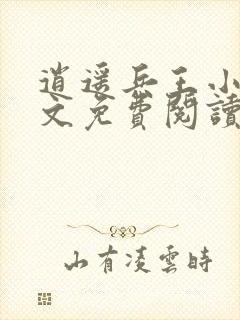 逍遥兵王小
文免費閱讀
山有凌雲時